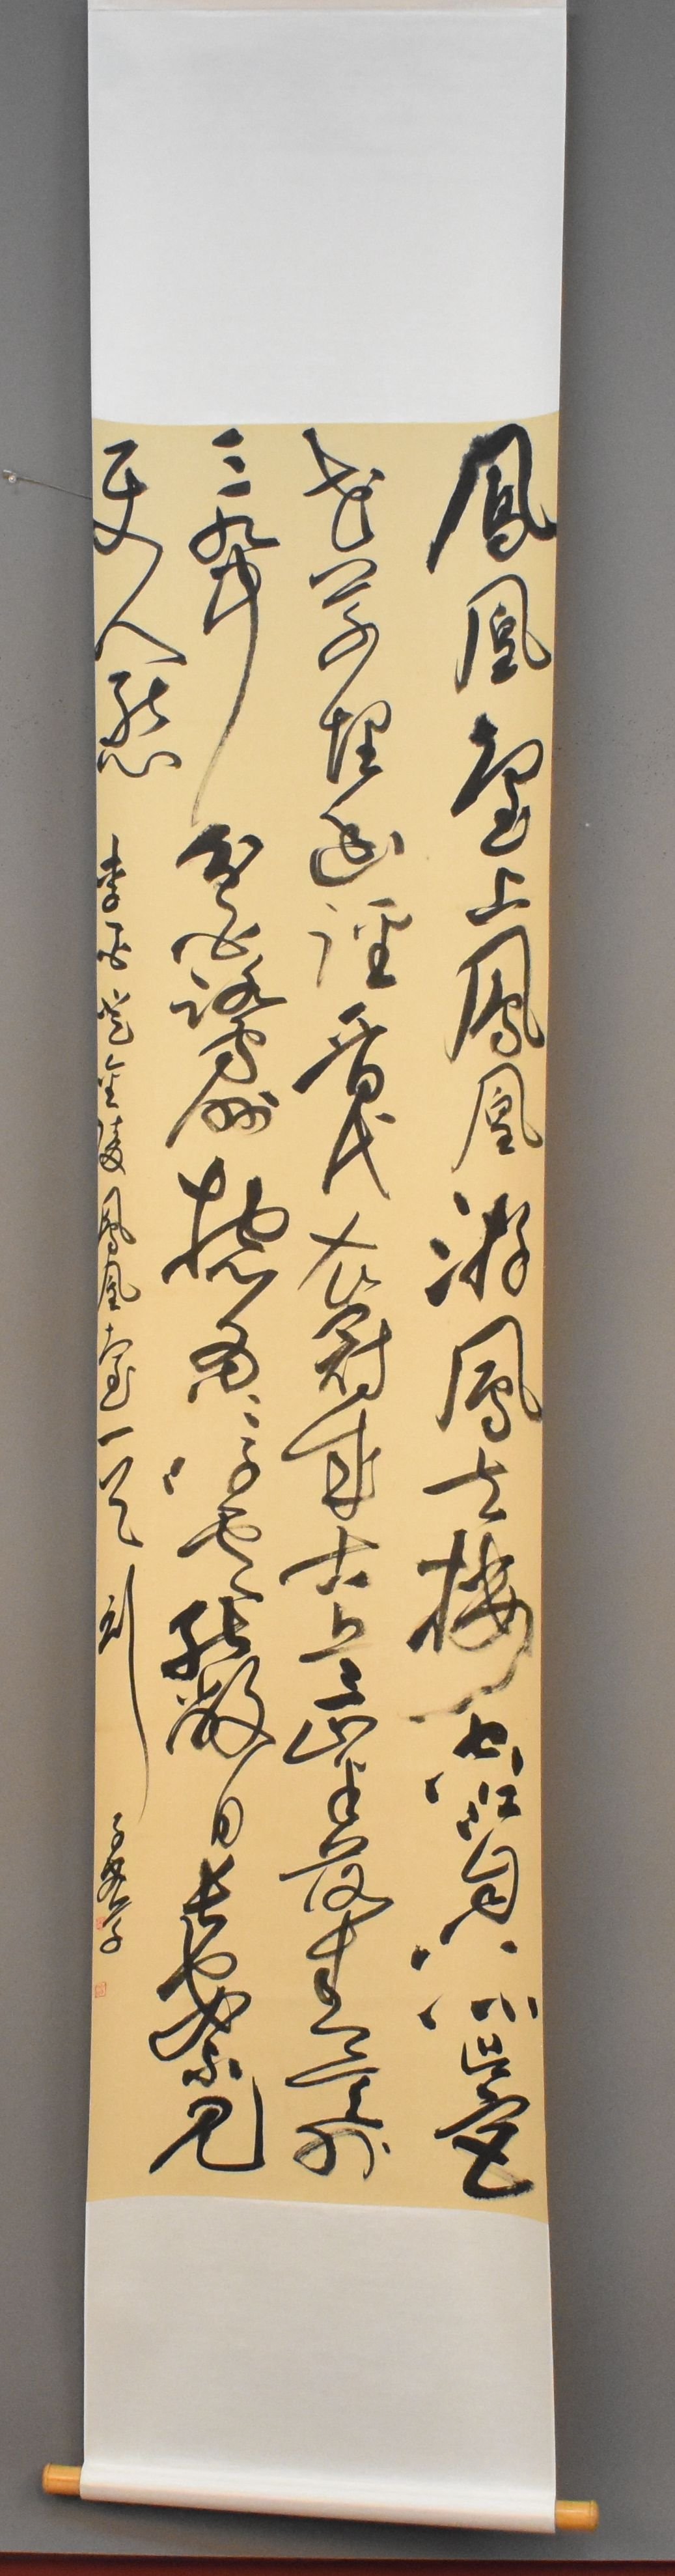 鳳凰臺上鳳凰游鳳去樓空江自流吳宮
花草埋幽徑晉代衣冠成古丘三山半落青天外
二水中分白鷺洲總為浮雲能蔽日長安不見
使人愁 李白登金陵鳳凰臺一首 劉